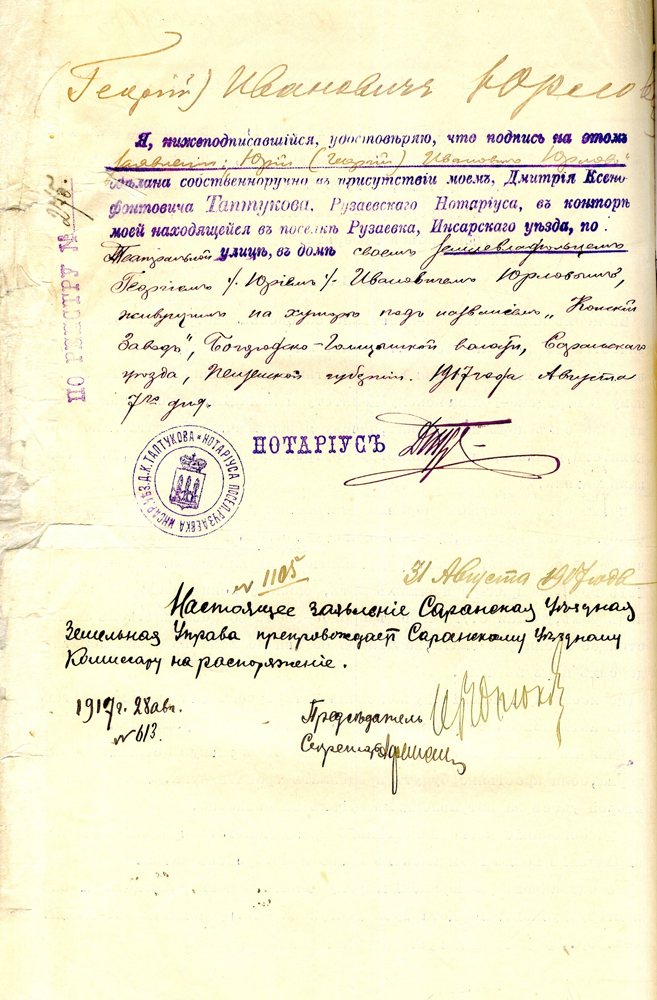 (Георгій) Ивановичъ Юрлов
Я, нижеподписавшійся, удостовѣряю, что подпись на этомъ
заявленіи: „Юрій (Георгій) Ивановичъ Юрловъ"
сдѣлана собственноручно въ присутствіи моемъ, Дмитрія Ксено-
фонтовича Таптукова, Рузаевскаго Нотаріуса, въ конторѣ
моей находящейся въ поселкѣ Рузаевка, Инсарскаго уѣзда, по
Театральной улицѣ, въ домѣ своемъ землевладѣльцемъ
Георгіемъ /-Юріемъ/- Ивановичемъ Юрловымъ,
живущимъ на хуторѣ подъ названіемъ „Конскій
Заводъ", Богородско-Голицынской волости, Саранскаго
уѣзда, Пензенской губерніи. 1917 года Августа
7го дня.
ПО РЕЕСТРУ №
НОТАРІУСЪ
Д.К.ТАПТУКОВА НОТАРІУСА ПОСЕЛ. РУЗАЕВКА ИНСАР. УѢЗ.
№ 1105
31 Августа 1907 года
Настоящее заявленіе Саранская Уѣздная
Земельная Управа препровождаетъ Саранскому Уѣздному
Комиссару на распоряженіе.
1917 г. 28 авг.
№ 613.
Предсѣдатель
Секретарь